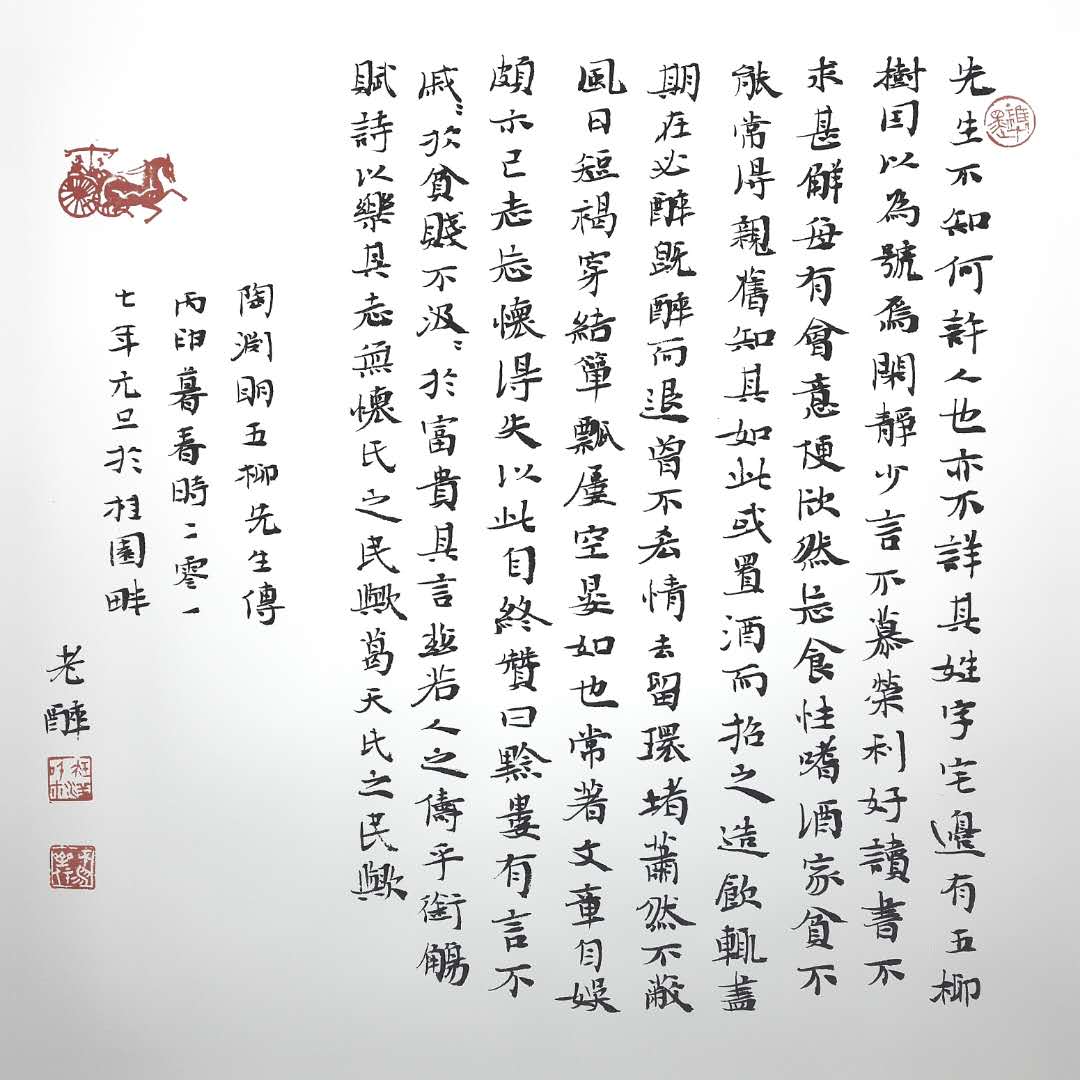 先生不知何許人也亦不詳其姓字宅邊有五柳
樹囙以為號焉閑靜少言不慕榮利好讀書不
求甚解每有會意便欣然忘食性嗜酒家貧不
能常得親舊知其如此或置酒而招之造飲輒盡
期在必醉既醉而退曾不吝情去留環堵蕭然不蔽
風日短褐穿結簞瓢屢空晏如也常著文章自娛
頗示己志忘懷得失以此自終贊曰黔婁有言不
戚〻於貧賤不汲〻於富貴其言茲若人之儔乎銜觴
賦詩以樂其志無懷氏之民歟葛天氏之民歟
陶淵明五柳先生傳
丙申暮春時二零一
七年元旦於桂園畔
老醉